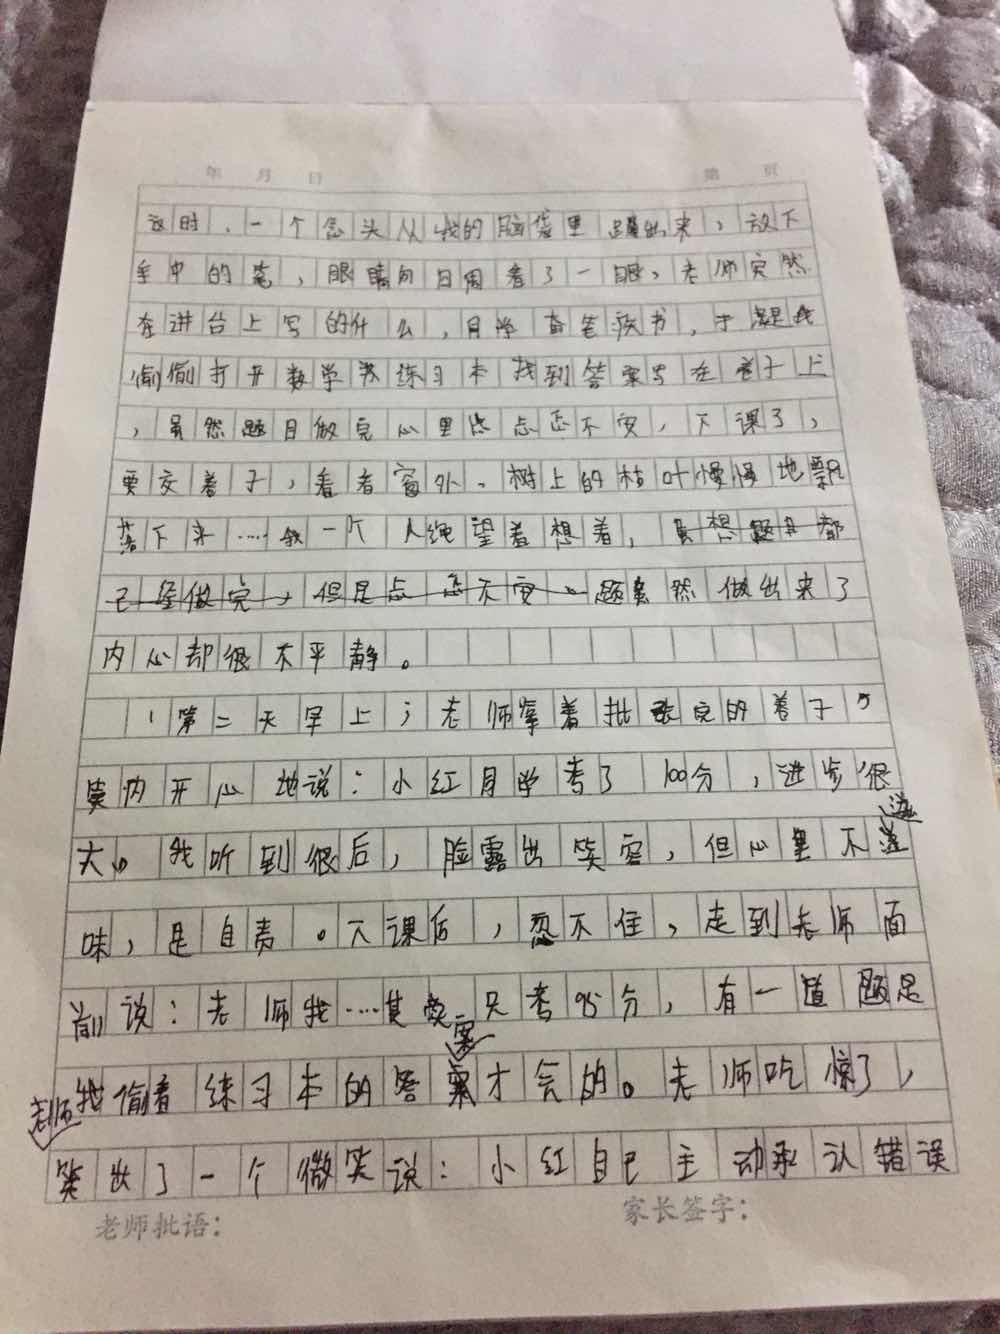 年 月 日 第 页
这时,一个念头从我的脑袋里蹦出来,放下
手中的笔,眼睛向四周看了一眼,老师突然
在讲台上写的什么,同学奋笔疾书,于是我
偷偷打开数学练习本找到答案写在卷子上
,虽然题目做完心里忐忑不安,下课了,
要交卷子,看着窗外。树上的枯叶慢慢地飘
落下来……我一个人绝望着想着,虽想题目都
已经做完,但是忐忑不安。题虽然做出来了
内心却很不平静。
第二天早上,老师拿着批改完的卷子,
笑内开心地说:小红同学考了100分,进步很
大。我听到很后,脸露出笑容,但心里不滋
味,是自责。下课后,忍不住,走到老师面
前说:老师我……其实只考95分,有一道题是
我偷看练习本的答案才会的。老师吃惊了,
老师
笑出了一个微笑说:小红自己主动承认错误
老师批语: 家长签字: